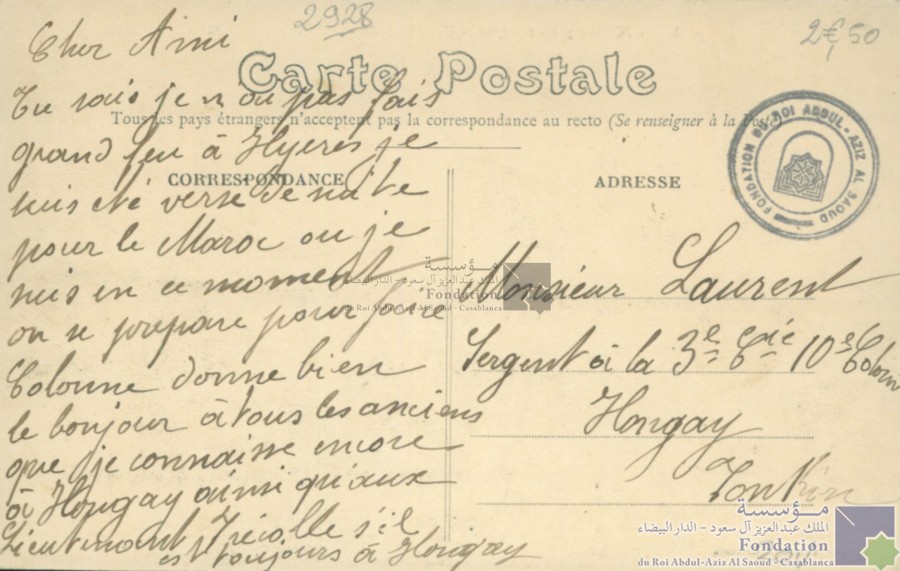 2928
2€,50
Cher Ami
Carte Postale
Tu sais je n'ai pas fais
Tous les pays étrangers n'acceptent pas la correspondance au recto (Se renseigner à la Poste)
grand feu à Hyeres je
CORRESPONDANCE
suis été versé de suite
pour le Maroc ou je
suis en ce moment
on se prepare pour faire
Colonne donne bien
le bonjour à tous les anciens
que je connaisse encore
à Hongay ainsi qu'aux
Lieutenant s'il
est toujours à Hongay
ADRESSE
FONDATION DU ROI ABDUL-AZIZ AL SAOUD
Monsieur Laurent
Sergent à la 3e Cie 10e Coloni
Hongay
Tonkin
مؤسسة
الملك عبدالعزيز آل سعود - الدار البيضاء
Fondation
du Roi Abdul-Aziz Al Saoud - Casablanca
مؤسسة
الملك عبدالعزيز آل سعود - الدار البيضاء
Fondation
du Roi Abdul-Aziz Al Saoud - Casablanca